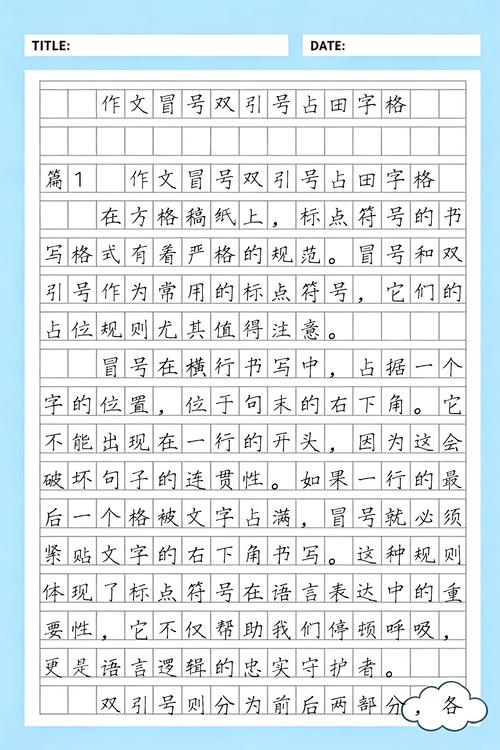 TITLE:
DATE:
作文冒号双引号占田字格
篇1 作文冒号双引号占田字格
在方格稿纸上，标点符号的书
写格式有着严格的规范。冒号和双
引号作为常用的标点符号，它们的
占位规则尤其值得注意。
冒号在横行书写中，占据一个
字的位置，位于句末的右下角。它
不能出现在一行的开头，因为这会
破坏句子的连贯性。如果一行的最
后一个格被文字占满，冒号就必须
紧贴文字的右下角书写。这种规则
体现了标点符号在语言表达中的重
要性，它不仅帮助我们停顿呼吸，
更是语言逻辑的忠实守护者。
双引号则分为前后两部分，各